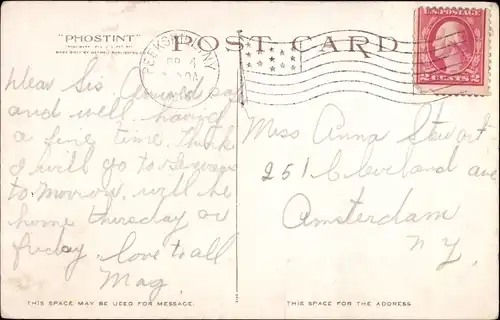 "PHOSTINT"
POST CARD
PEEKSKILL, N.Y.
2 CENTS 2
Dear Sis Arrived safe
and well having
a fine time. think
I will go to
to morrow. will be
home thursday or
friday. love to all
Mag.
Miss Anna Stewart
251 Cleveland ave
Amsterdam
N.Y.
THIS SPACE MAY BE USED FOR MESSAGE.
THIS SPACE FOR THE ADDRESS